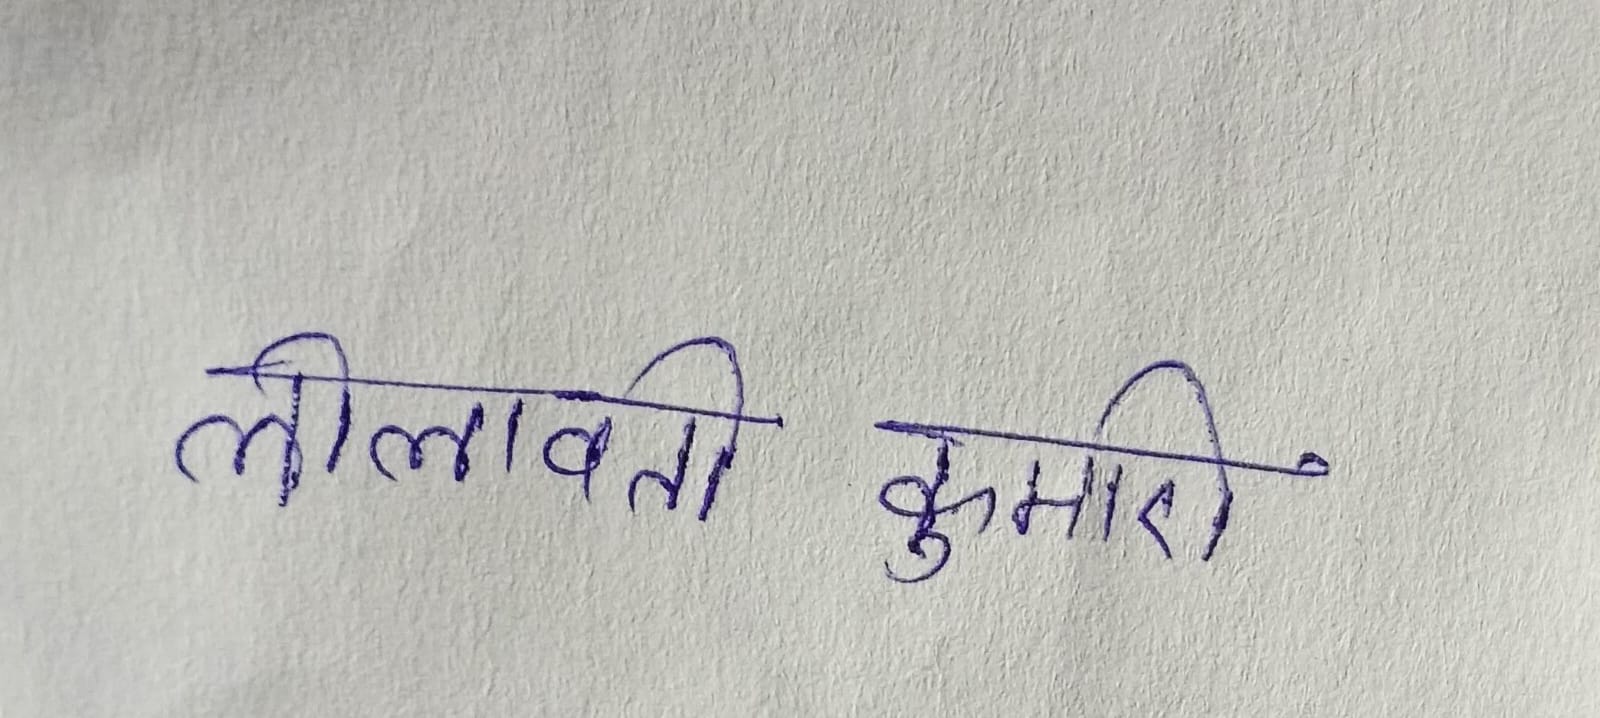 लीलावती कुमारी